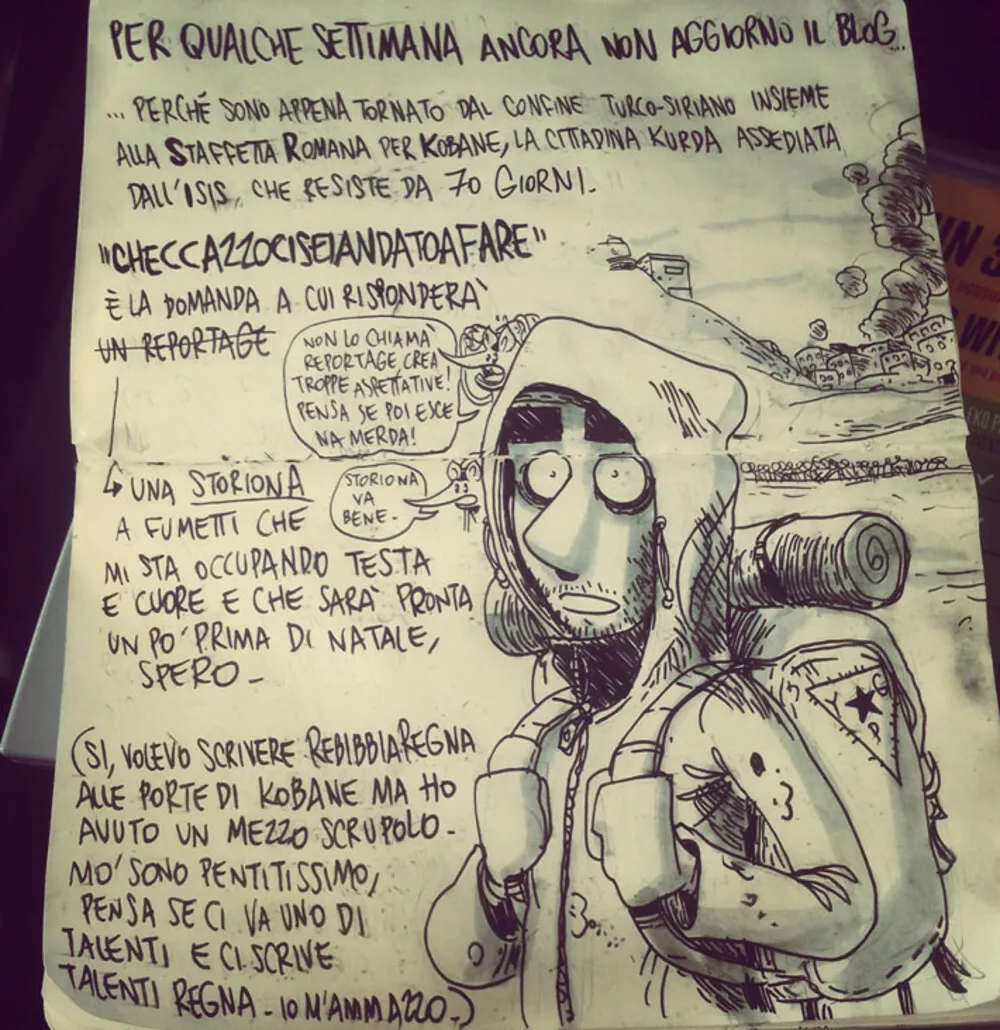 PER QUALCHE SETTIMANA ANCORA NON AGGIORNO IL BLOG...
... PERCHÉ SONO APPENA TORNATO DAL CONFINE TURCO-SIRIANO INSIEME
ALLA STAFFETTA ROMANA PER KOBANE, LA CITTADINA KURDA ASSEDIATA
DALL'ISIS, CHE RESISTE DA 70 GIORNI-
"CHECCAZZOCISEIANDATOAFARE"
È LA DOMANDA A CUI RISPONDERA'
UN REPORTAGE
NON LO CHIAMA'
REPORTAGE CREA
TROPPE ASPETTATIVE!
PENSA SE POI ESCE
NA MERDA!
UNA STORIONA
A FUMETTI CHE
MI STA OCCUPANDO TESTA
E CUORE E CHE SARA' PRONTA
UN PO' PRIMA DI NATALE,
SPERO-
STORIONA
VA
BENE-
(SI, VOLEVO SCRIVERE REBIBBIAREGNA
ALLE PORTE DI KOBANE MA HO
AVUTO UN MEZZO SCRUPOLO-
MO' SONO PENTITISSIMO,
PENSA SE CI VA UNO DI
TALENTI E CI SCRIVE
TALENTI REGNA- IO M'AMMAZZO-)
Y P G